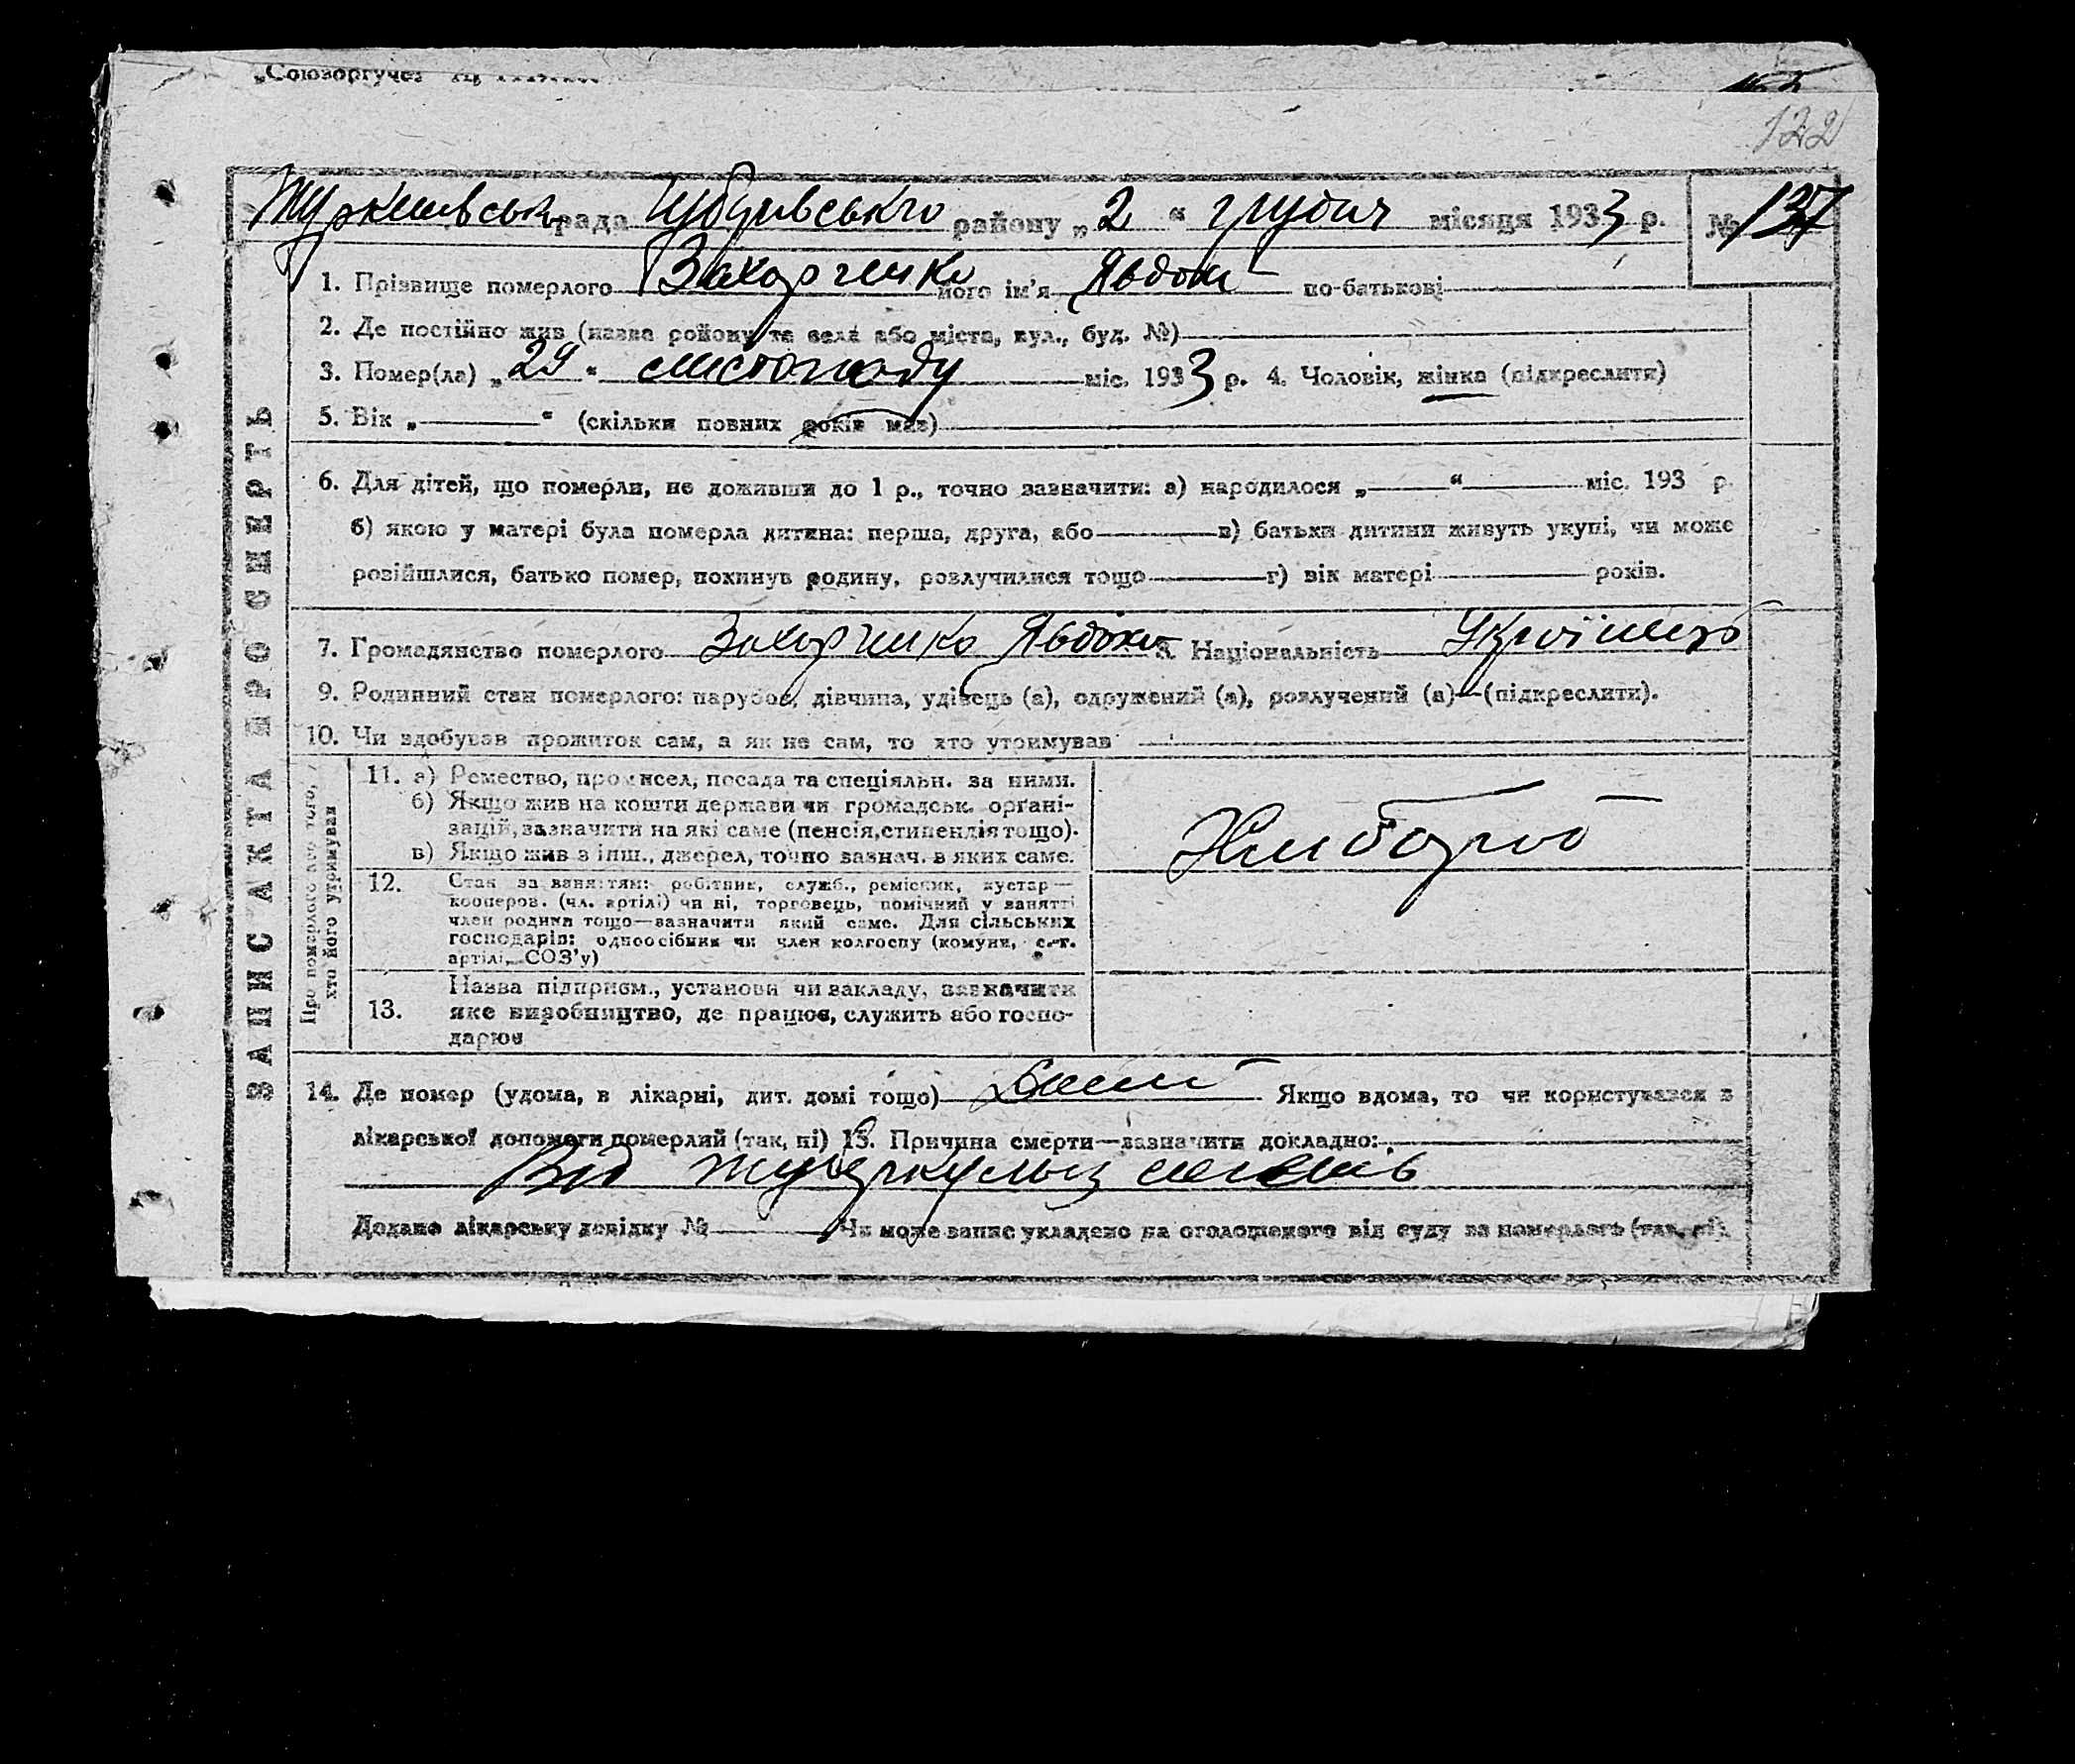 „Союзоргучет
122
рада Цибулівського району „2“ грудня місяця 1933 р. № 137
1. Прізвище померлого Захарченко його ім’я Явдоки по-батькові
2. Де постійно жив (назва району та села або міста, вул., буд. №)
3. Помер(ла) „29“ листопаду міс. 1933 р. 4. Чоловік, жінка (підкреслити)
5. Вік „ “ (скільки повних років мав)
6. Для дітей, що померли, не доживши до 1 р., точно зазначити: а) народилося „ “ міс. 193 р.
б) якою у матері була померла дитина: перша, друга, або в) батьки дитини живуть укупі, чи може
розійшлися, батько помер, покинув родину, розлучилися тощо г) вік матері років.
7. Громадянство померлого Захарченко Явдоки 8. Національність
9. Родинний стан померлого: парубок, дівчина, удівець (а), одружений (а), розлучений (а)—(підкреслити).
10. Чи здобував прожиток сам, а як не сам, то хто утримував
ЗАПИС АКТА ПРО СМЕРТЬ
Про померлого або того, хто його утримував
11. а) Ремество, промисел, посада та спеціяльн. за ними.
б) Якщо жив на кошти держави чи громадськ. органі-
зацій, зазначити на які саме (пенсія, стипендія тощо).
в) Якщо жив з інш., джерел, точно зазнач. в яких саме.
Хлибороб
12. Стан за заняттям: робітник, служб., ремісник, кустар—
кооперов. (чл. артілі) чи ні, торговець, помічний у занятті
член родини тощо—зазначити який саме. Для сільських
господарів: одноосібник чи член колгоспу (комуни, с.-г.
артілі, СОЗ’у)
Назва підприєм., установи чи закладу, зазначити
13. яке виробництво, де працює, служить або госпо-
дарює
14. Де помер (удома, в лікарні, дит. домі тощо) Якщо вдома, то чи користувався з
лікарської допомоги померлий (так, ні) 15. Причина смерти—зазначити докладно:
Від туберкульоз легенів
Додано лікарську довідку № Чи може запис укладено на оголошеного від суду за померлого (так, ні).